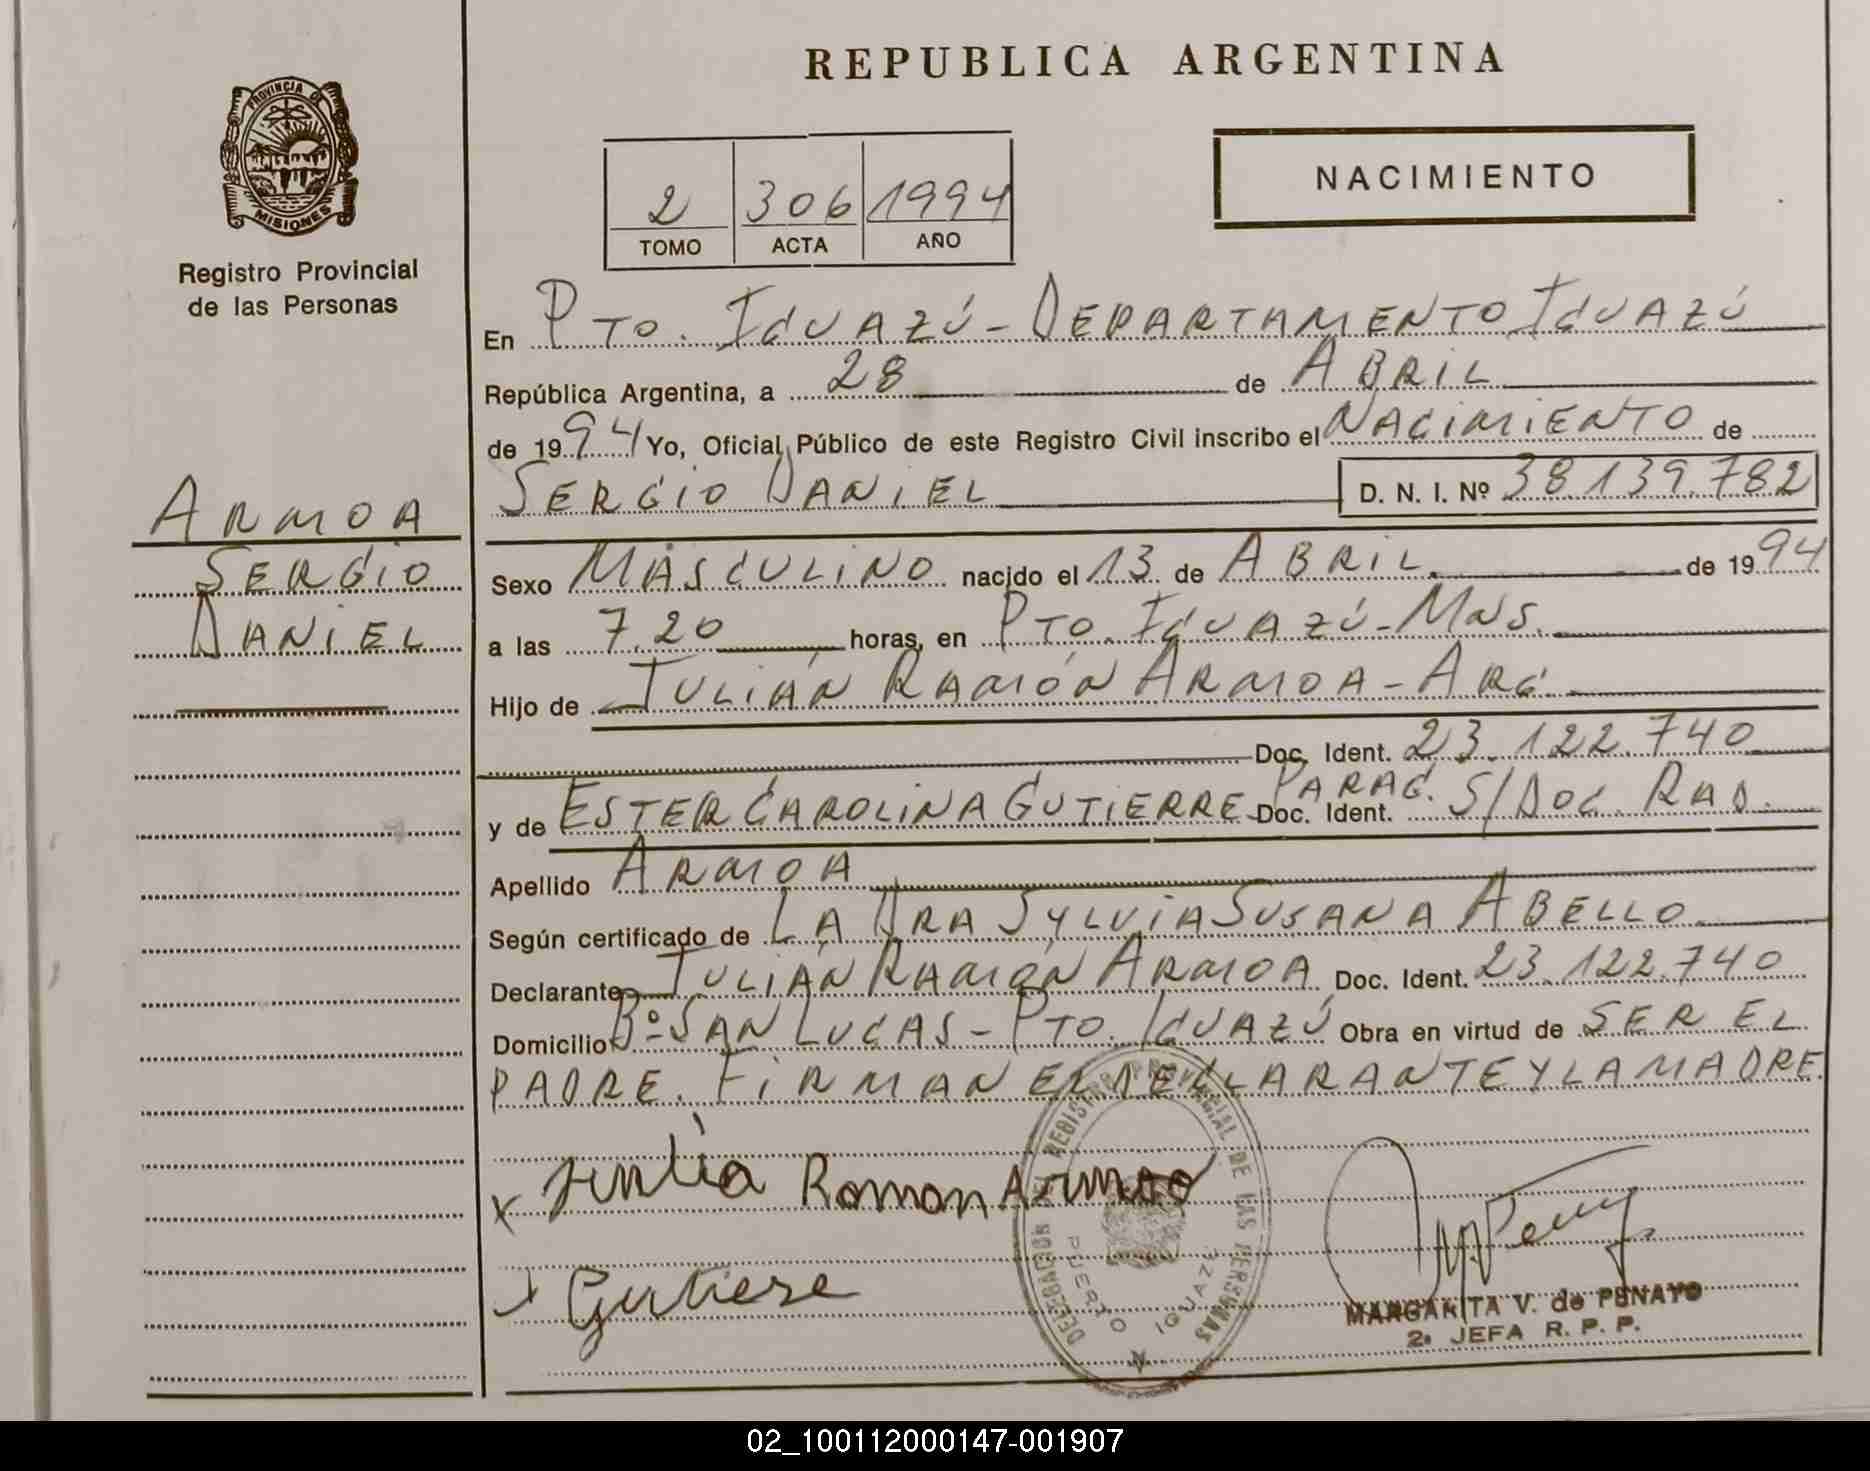 REPUBLICA ARGENTINA
PROVINCIA DE
MISIONES
Registro Provincial
de las Personas
2 306 1994
TOMO ACTA AÑO
NACIMIENTO
En PTO. IGUAZÚ - DEPARTAMENTO IGUAZÚ
República Argentina, a 28 de ABRIL
de 1994 Yo, Oficial Público de este Registro Civil inscribo el NACIMIENTO de
SERGIO DANIEL D. N. I. Nº 38.139.782
ARMOA
SERGIO
DANIEL
Sexo MASCULINO nacido el 13 de ABRIL. de 1994
a las 7.20 horas, en PTO. IGUAZÚ - MNS.
Hijo de JULIÁN RAMÓN ARMOA - ARG.
Doc. Ident. 23.122.740
y de ESTER CAROLINA GUTIERRE PARAG. Doc. Ident. S/DOC. RAD.
Apellido ARMOA
Según certificado de LA DRA SYLVIA SUSANA ABELLO
Declarante JULIÁN RAMÓN ARMOA Doc. Ident. 23.122.740
Domicilio Bº SAN LUCAS - PTO. IGUAZÚ Obra en virtud de SER EL
PADRE. FIRMAN EL DECLARANTE Y LA MADRE.
x Ramon Armoa
x Gutiere
DELEGACION DEL REGISTRO PROVINCIAL DE LAS PERSONAS
PUERTO IGUAZU
MARGARITA V. de PENAYO
2a JEFA R. P. P.
02_100112000147-001907